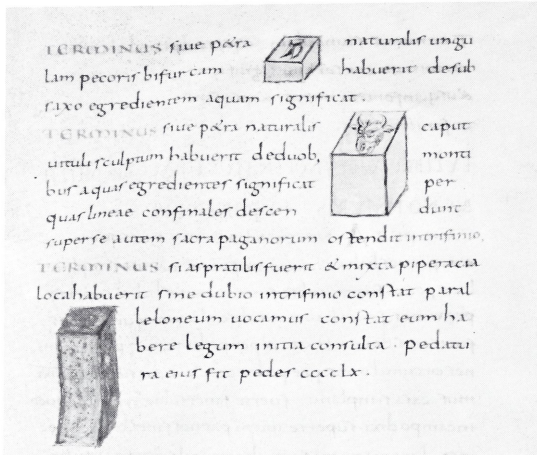 TERMINUS sive petra naturalis ungu
lam pecoris bifurcam habuerit desub
saxo egredientem aquam significat.
TERMINUS sive petra naturalis caput
vituli sculptum habuerit deduob, monti
bus aquas egredientes significat per
quas lineae confinales descen dunt
super se autem sacra paganorum ostendit intrifinio,
TERMINUS si aspratilis fuerit & mixta piperacia
loca habuerit sine dubio intrifinio constat paral
leloneum vocamus constat eum ha
bere legum initia consulta. Pedatu
ra eius fit pedes ccccLx.